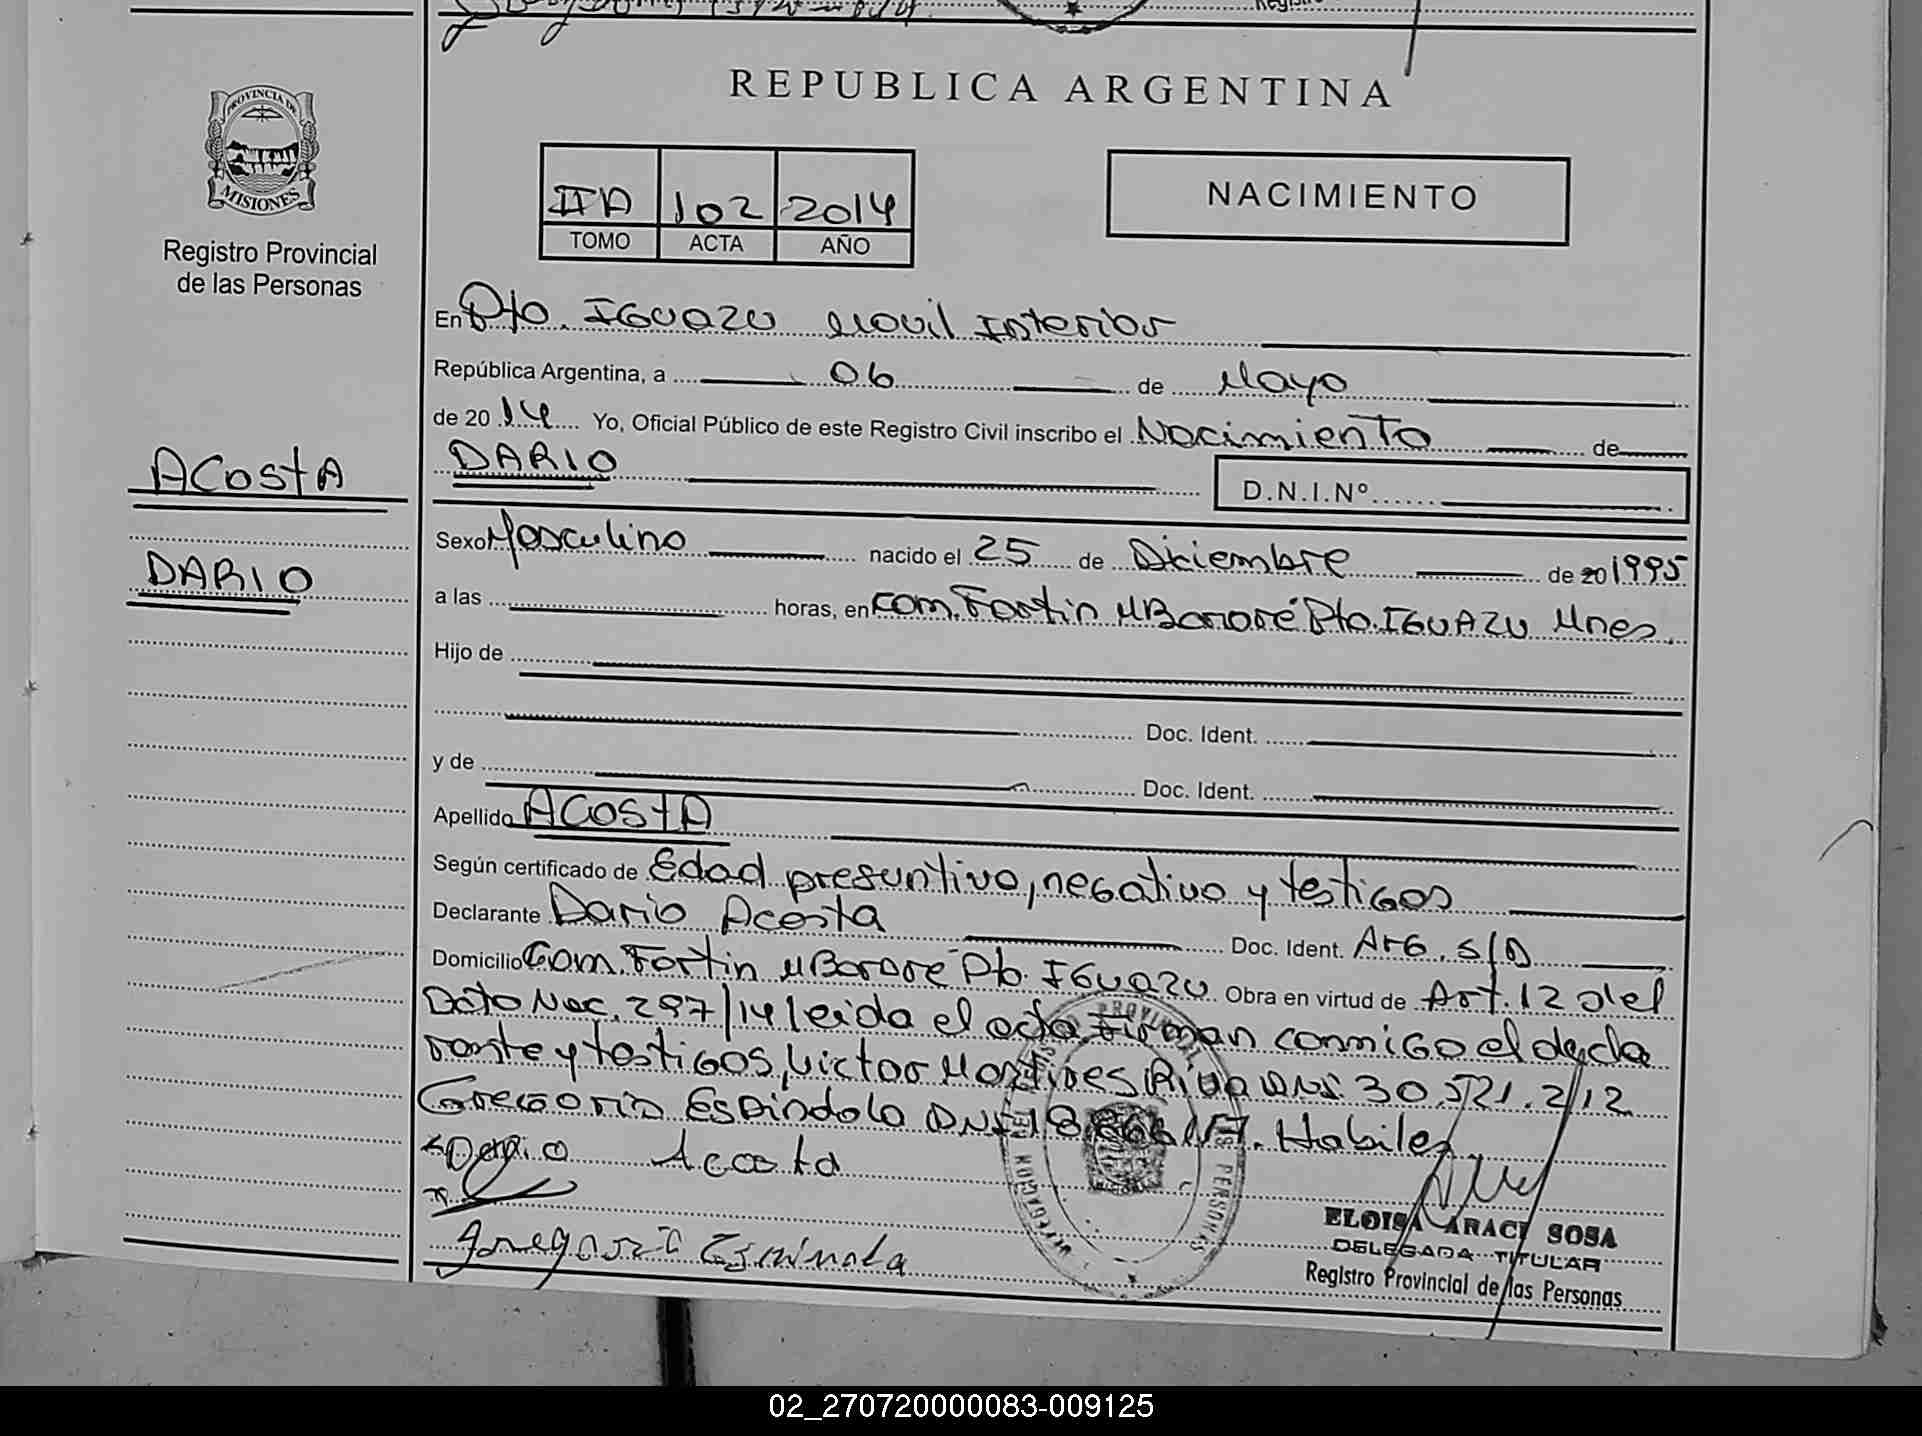 REPUBLICA ARGENTINA
PROVINCIA DE
MISIONES
Registro Provincial
de las Personas
IIA 102 2014
TOMO ACTA AÑO
NACIMIENTO
En Pto. IGUAZU Movil Interior
República Argentina, a 06 de Mayo
de 2014 Yo, Oficial Público de este Registro Civil inscribo el Nacimiento de
ACOSTA
DARIO
D.N.I.Nº
DARIO
Sexo Masculino nacido el 25 de Diciembre de 20 1995
a las horas, en Com. Fortin MBororé Pto. IGUAZU Mnes.
Hijo de
Doc. Ident.
y de Doc. Ident.
Apellido ACOSTA
Según certificado de Edad presuntivo, negativo y testigos
Declarante Dario Acosta Doc. Ident. Arg. S/D
Domicilio Com. Fortin MBororé Pto. IGUAZU Obra en virtud de Art. 12 del
Dcto Nac. 297/14 leida el acta firman conmigo el decla
rante y testigos, Victor DNI 30.521.212
Gregorio Espindola DNI Habiles
Dario Acosta
ELOISA ARACI SOSA
DELEGADA TITULAR
Registro Provincial de las Personas
02_270720000083-009125